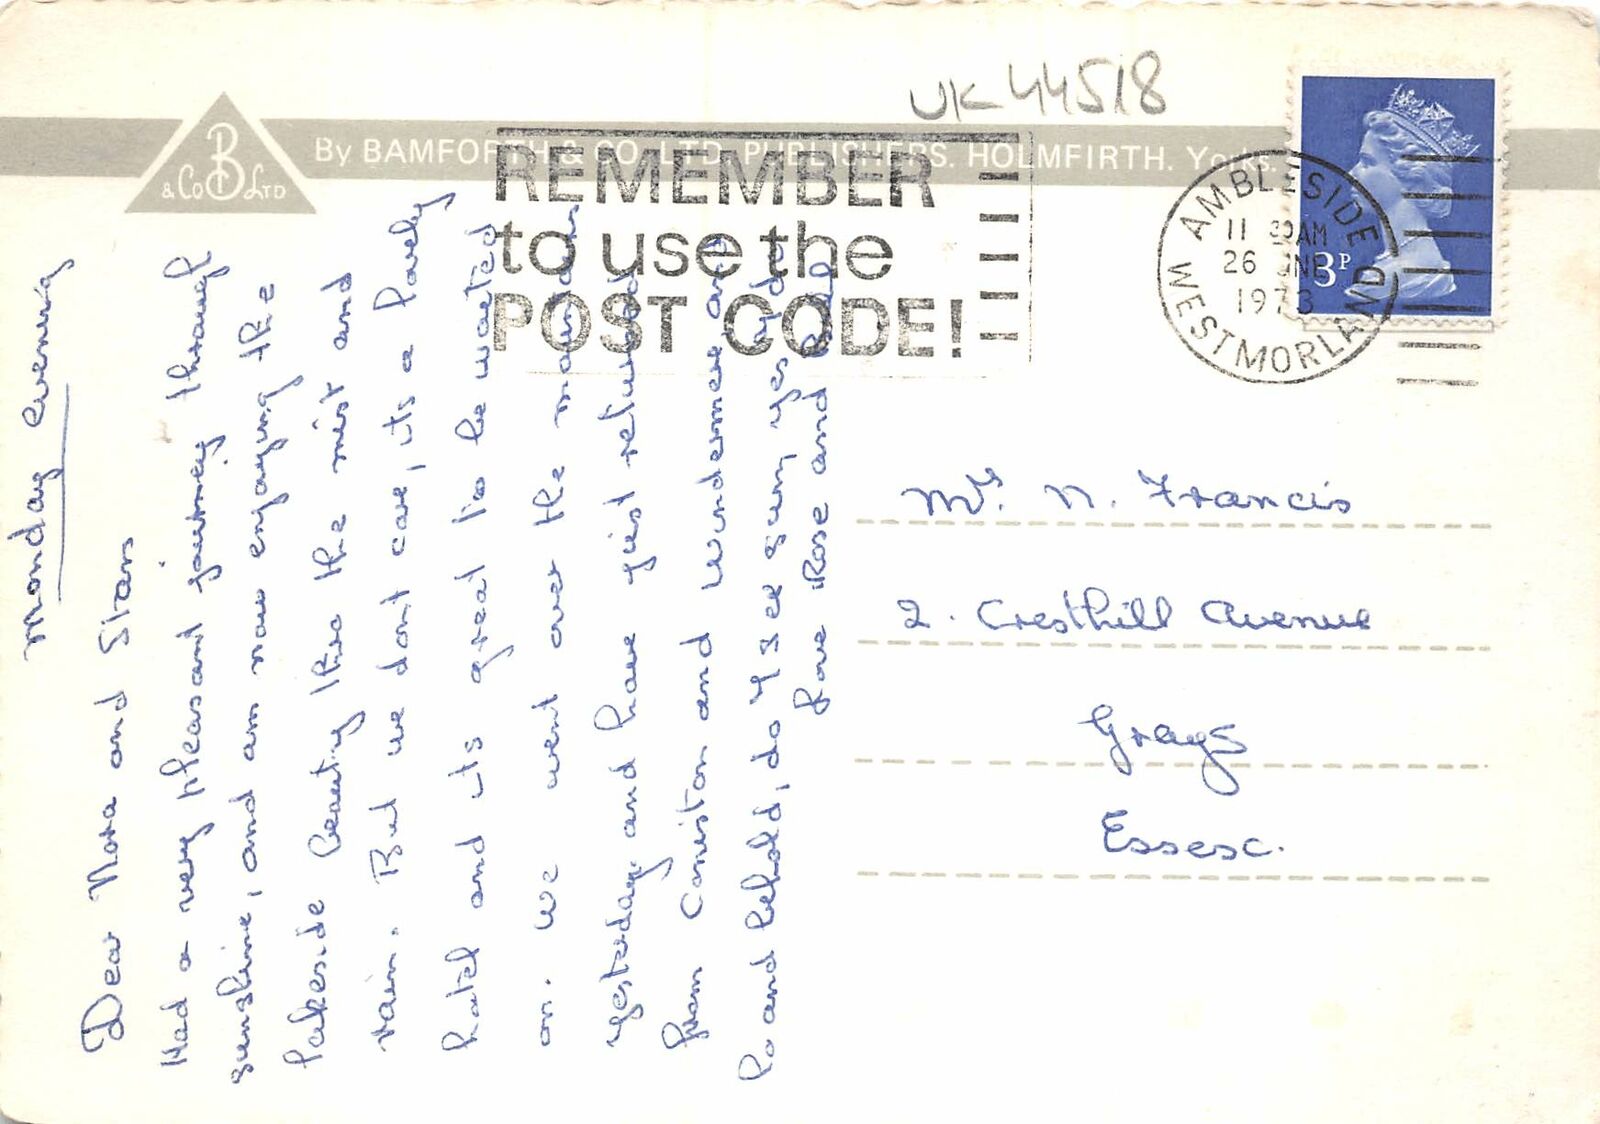 UK 44518
B
& Co LTD
By BAMFORTH & CO. LTD. PUBLISHERS. HOLMFIRTH. Yorks.
REMEMBER
to use the
POST CODE!
AMBLESIDE
11 30AM
26 JNE
1973
WESTMORLAND
3P
Monday Evening
Dear Nora and Stan
Had a very pleasant journey through
sunshine, and am now enjoying the
lakeside beauty thro the mist and
rain. But we dont care, its a lovely
hotel and its great to be waited
on. We went over the mountains
yesterday and have just returned
from Coniston and Windermere and
lo and behold, do I see sun, yes I do
Love Rose and
Mrs. N. Francis
2. Cresthill Avenue
Grays
Essex.